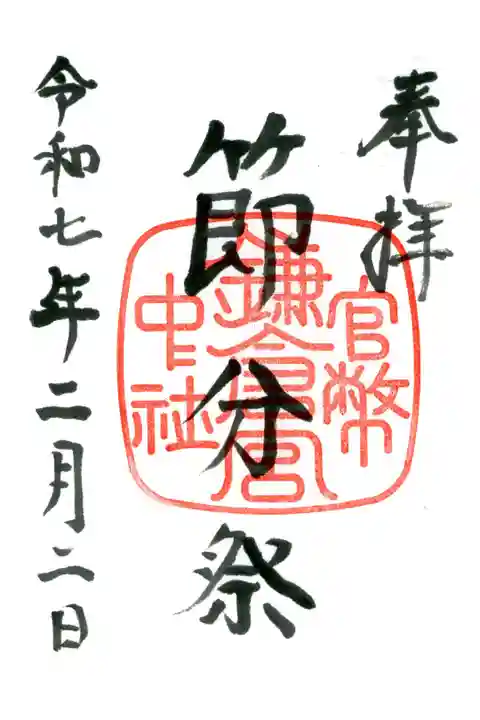 奉拝
節分祭
官幣
鎌倉宮
中社
令和七年二月二日